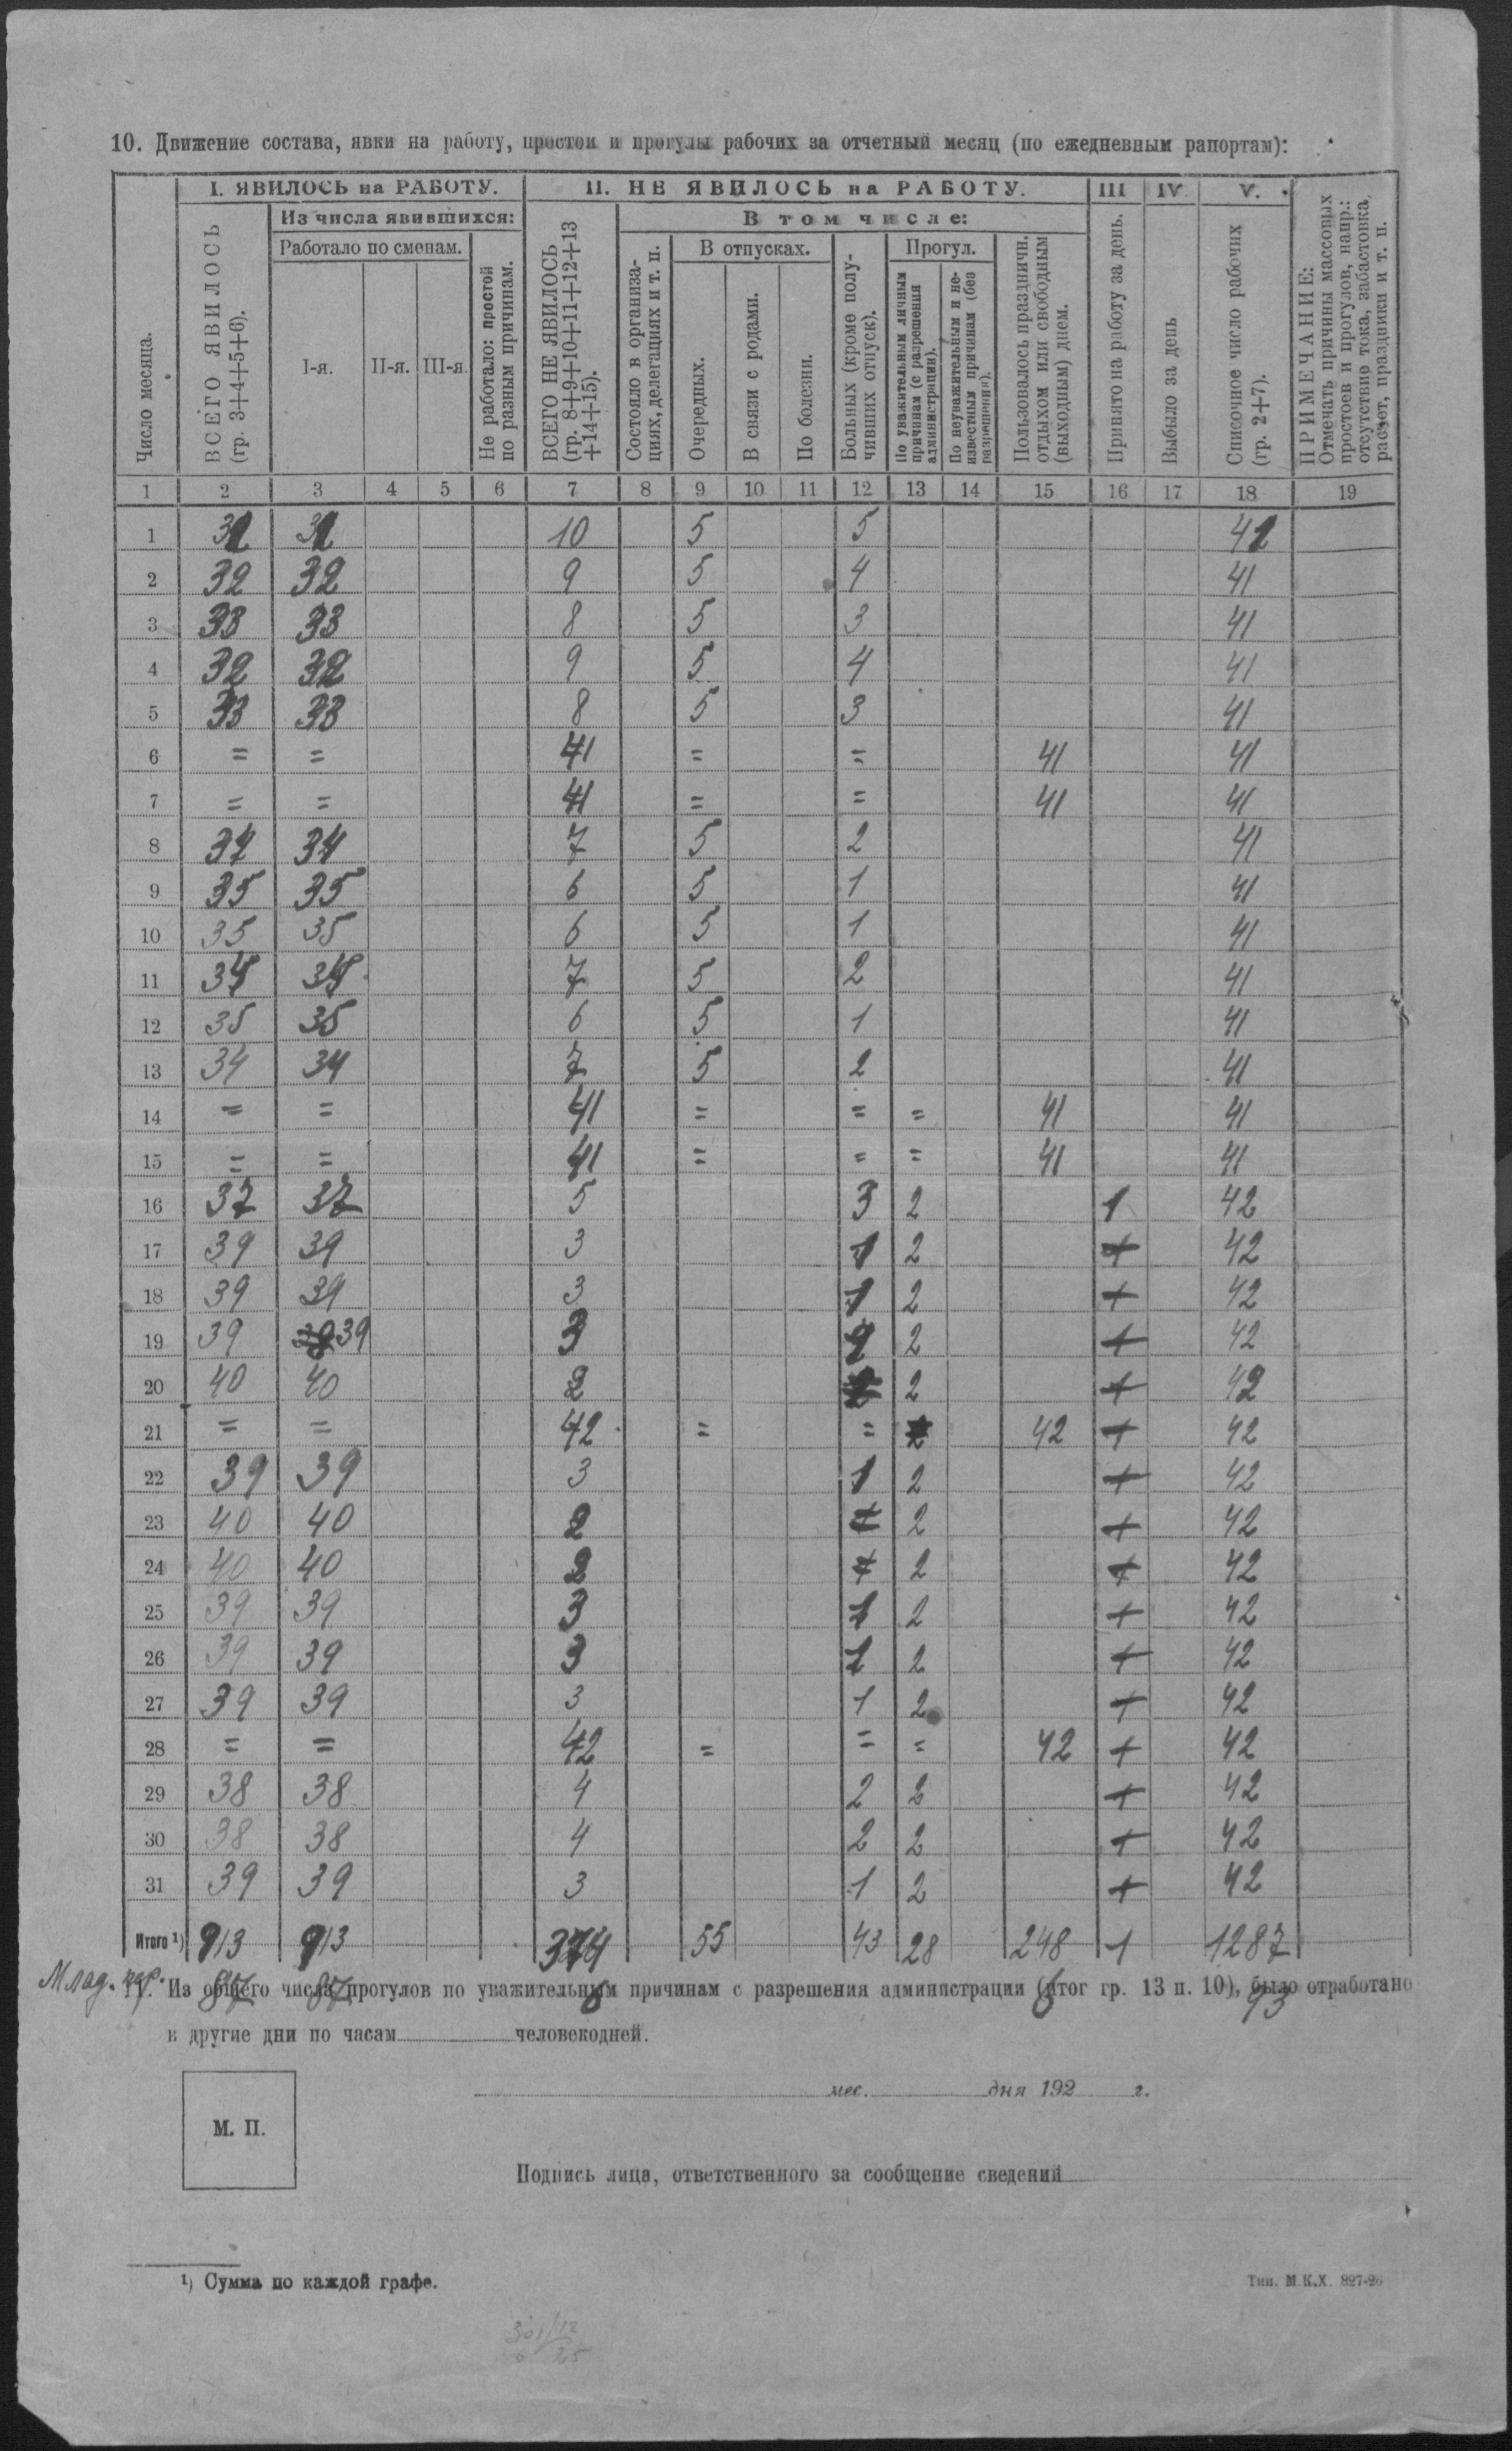 10. Движение состава, явки на работу, простои и прогулы рабочих за отчетный месяц (по ежедневным рапортам):
Число месяца.
I. ЯВИЛОСЬ на РАБОТУ.
ВСЕГО ЯВИЛОСЬ (гр. 3+4+5+6).
Из числа явившихся:
Работало по сменам.
I-я. II-я. III-я.
Не работало: простой по разным причинам.
II. НЕ ЯВИЛОСЬ на РАБОТУ.
ВСЕГО НЕ ЯВИЛОСЬ (гр. 8+9+10+11+12+13+14+15).
В том числе:
Состояло в организациях, делегациях и т. п.
В отпусках.
Очередных.
В связи с родами.
По болезни.
Больных (кроме получивших отпуск).
Прогул.
По уважительным личным причинам (с разрешения администрации).
По неуважительным и неизвестным причинам (без разрешения).
Пользовалось праздничн. отдыхом или свободным (выходным) днем.
III
Принято на работу за день.
IV.
Выбыло за день
V.
Списочное число рабочих (гр. 2+7).
ПРИМЕЧАНИЕ:
Отмечать причины массовых простоев и прогулов, напр.: отсутствие тока, забастовка, расчет, праздники и т. п.
1 2 3 4 5 6 7 8 9 10 11 12 13 14 15 16 17 18 19
1 10 5 5
2 32 32 9 5 4 41
3 33 33 8 5 3 41
4 32 32 9 5 4 41
5 33 33 8 5 3 41
6 = = 41 = = 41 41
7 = = 41 = = 41 41
8 34 34 7 5 2 41
9 35 35 6 5 1 41
10 35 35 6 5 1 41
11 34 34 7 5 2 41
12 35 35 6 5 1 41
13 34 34 7 5 2 41
14 = = 41 = = = 41 41
15 = = 41 = = = 41 41
16 37 37 5 3 2 1 42
17 39 39 3 1 2 42
18 39 39 3 1 2 42
19 39 39 3 2 42
20 40 40 2 2 42
21 = = 42 = = 42 42
22 39 39 3 1 2 42
23 40 40 2 2 42
24 40 40 2 2 42
25 39 39 3 1 2 42
26 39 39 3 1 2 42
27 39 39 3 1 2 42
28 = = 42 = = = 42 42
29 38 38 4 2 2 42
30 38 38 4 2 2 42
31 39 39 3 1 2 42
Итого ¹) 913 913 374 55 43 28 248 1 1287
11. Из общего числа прогулов по уважительным причинам с разрешения администрации (итог гр. 13 п. 10), было отработано
в другие дни по часам человекодней.
мес. дня 192 г.
М. П.
Подпись лица, ответственного за сообщение сведений
¹) Сумма по каждой графе.
Тип. М.К.Х. 827-26